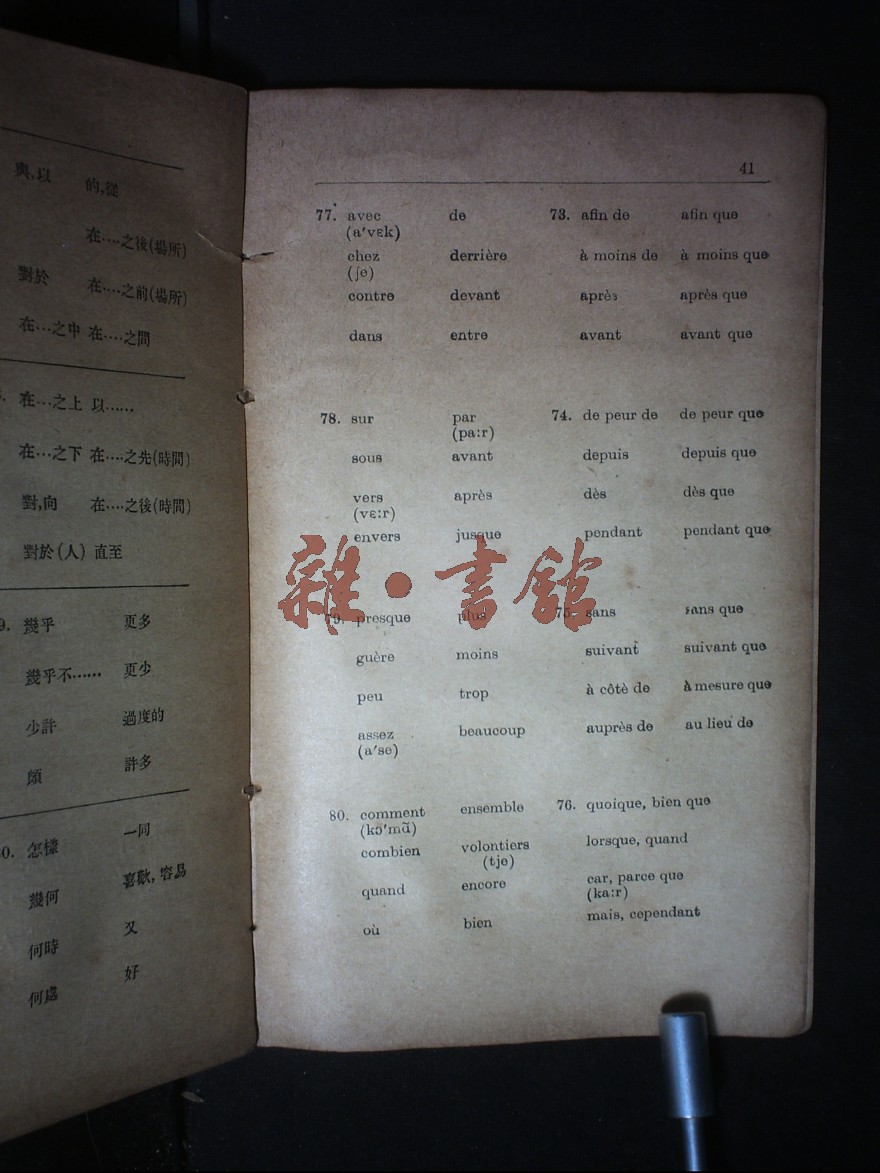 與,以 的,從
在....之後(場所)
對於 在....之前(場所)
在...之中 在....之間
在...之上 以......
在...之下 在....之先(時間)
對,向 在....之後(時間)
對於(人) 直至
幾乎 更多
幾乎不...... 更少
少許 過度的
頗 許多
怎樣 一同
幾何 喜歡,容易
何時 又
何處 好
41
77. avec de 73. afin de afin que
(a'vɛk)
chez derrière à moins de à moins que
(ʃe)
contre devant après après que
dans entre avant avant que
78. sur par 74. de peur de de peur que
(pa:r)
sous avant depuis depuis que
vers après dès dès que
(vɛ:r)
envers jusque pendant pendant que
雜·書館
79. presque plus 75. sans sans que
guère moins suivant suivant que
peu trop à côtè de À mesure que
assez beaucoup auprès de au lieu de
(a'se)
80. comment ensemble 76. quoique, bien que
(kɔ'mɑ̃)
combien volontiers lorsque, quand
(tje)
quand encore car, parce que
(ka:r)
où bien mais, cependant